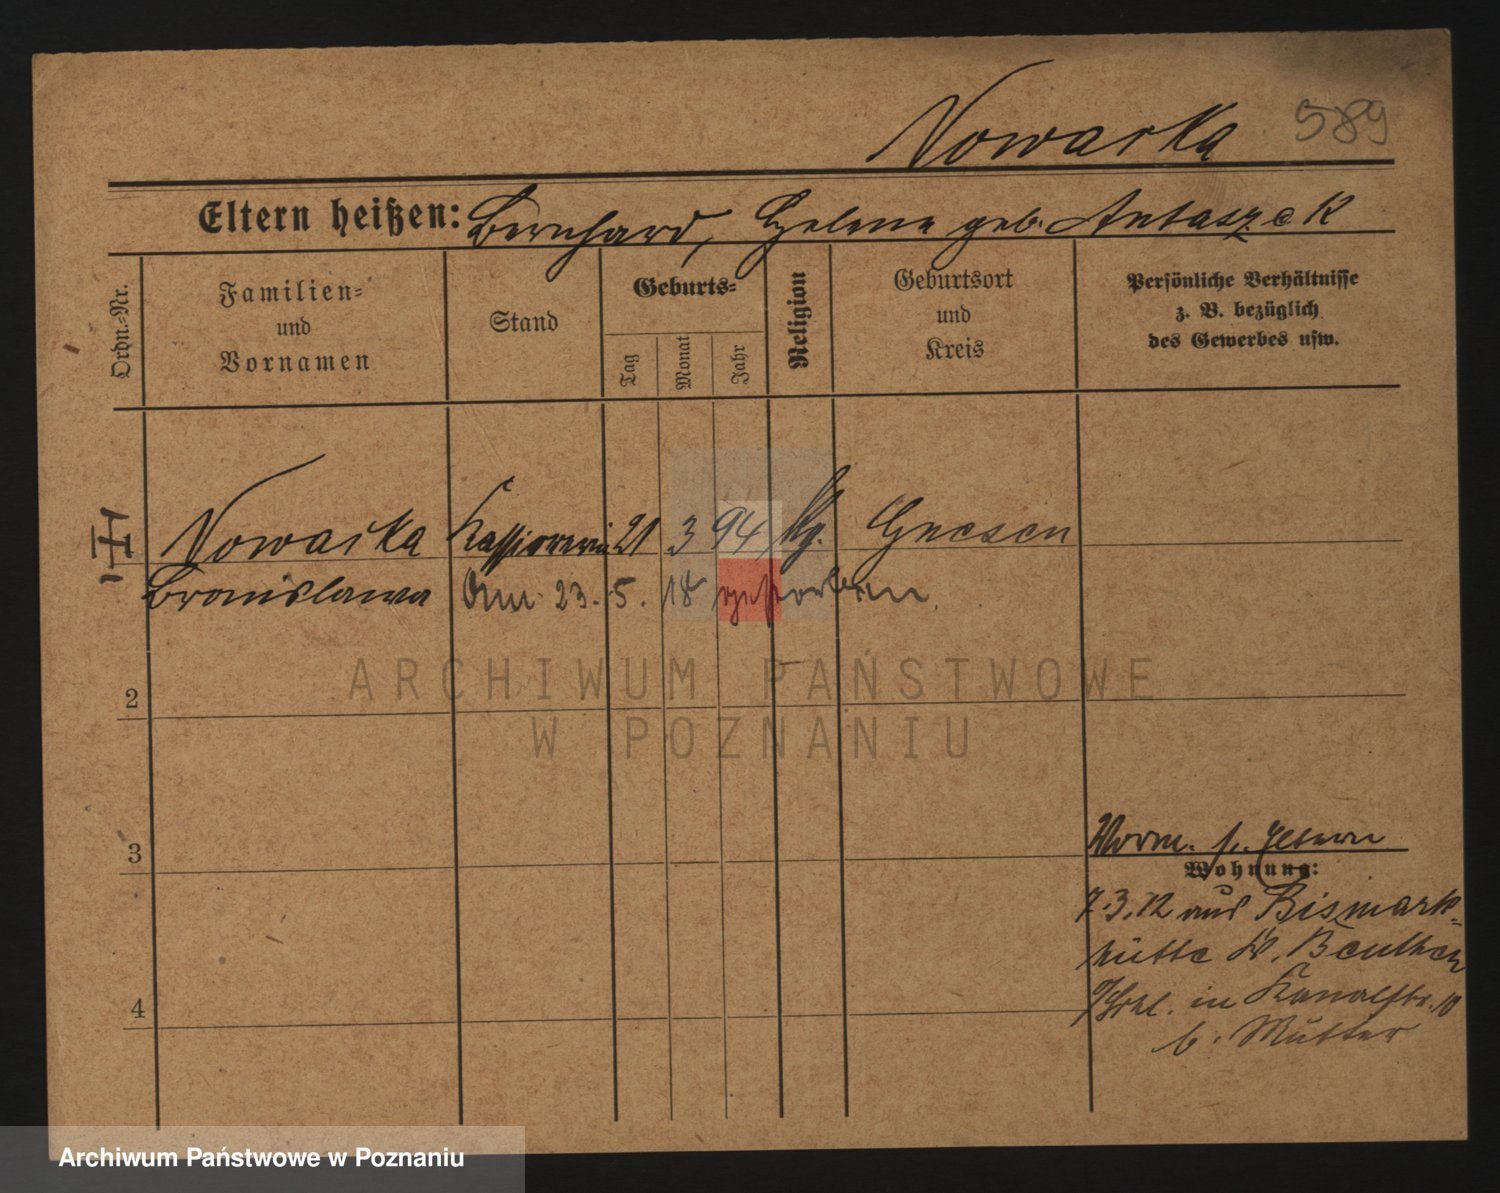 Nowacka 589
Eltern heißen: Bernhard, Helene geb. Antaszek
Ordn.-Nr.
Familien-
und
Vornamen
Stand
Geburts-
Tag
Monat
Jahr
Religion
Geburtsort
und
Kreis
Persönliche Verhältnisse
z. B. bezüglich
des Gewerbes usw.
Nowacka Kassiererin 21 3 94 Gnesen
Bronislawa Am 23. 5. 18 gestorben.
ARCHIWUM PAŃSTWOWE
W POZNANIU
2
3
4
Vorm. s. Eltern
Wohnung:
7.3.12 aus Bismark-
hütte Kr. Beuthen
in Kanalstr. 10
b. Mutter
Archiwum Państwowe w Poznaniu